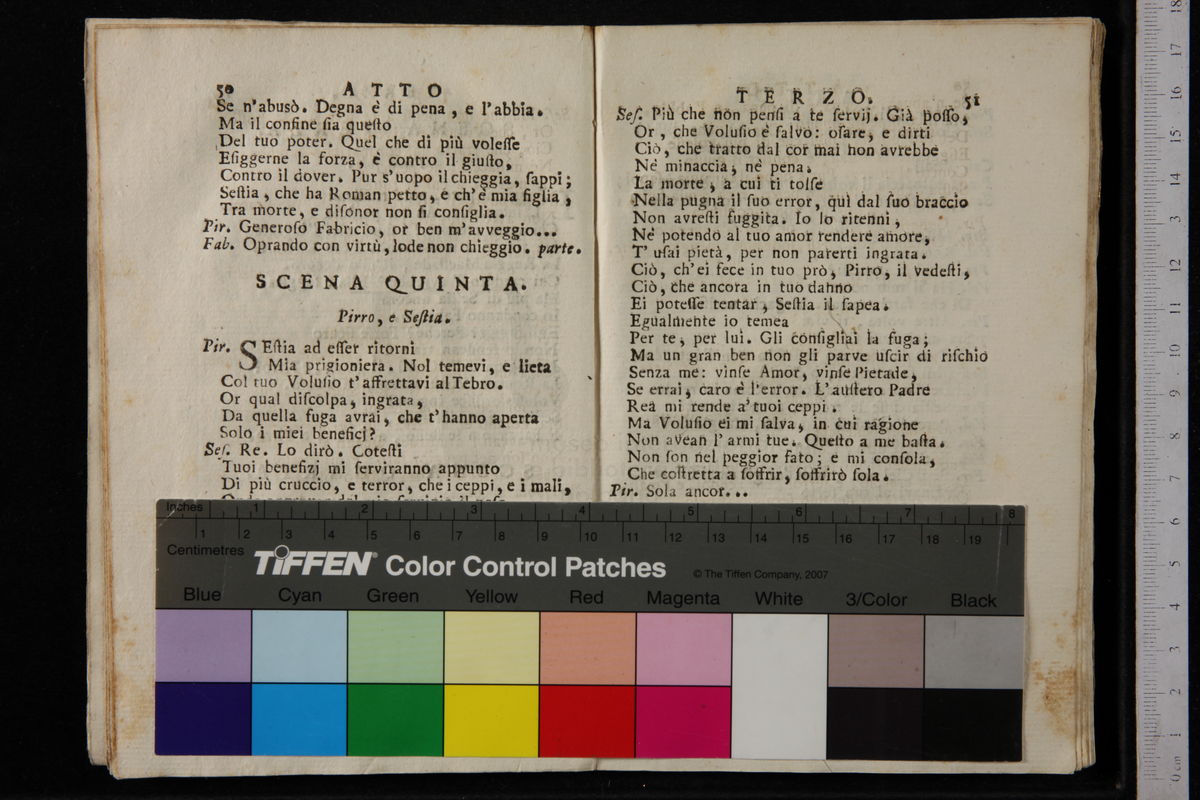 50 ATTO
Se n'abusò. Degna è di pena, e l'abbia.
Ma il confine ſia queſto
Del tuo poter. Quel che di più voleſſe
Eſiggerne la forza, è contro il giuſto,
Contro il dover. Pur s'uopo il chieggia, ſappi;
Seſtia, che ha Roman petto, e ch'è mia figlia,
Tra morte, e diſonor non ſi conſiglia.
Pir. Generoſo Fabricio, or ben m'avveggio...
Fab. Oprando con virtù, lode non chieggio. parte.
SCENA QUINTA.
Pirro, e Seſtia.
Pir. SEſtia ad eſſer ritorni
Mia prigioniera. Nol temevi, e lieta
Col tuo Voluſio t'affrettavi al Tebro.
Or qual diſcolpa, ingrata,
Da quella fuga avrai, che t'hanno aperta
Solo i miei beneficj?
Seſ. Re. Lo dirò. Coteſti
Tuoi benefizj mi ſerviranno appunto
Di più cruccio, e terror, che i ceppi, e i mali,
TERZO. 51
Seſ. Più che non penſi a te ſervij. Già poſſo,
Or, che Voluſio è ſalvo: oſare, e dirti
Ciò, che tratto dal cor mai non avrebbe
Nè minaccia, nè pena.
La morte, a cui ti tolſe
Nella pugna il ſuo error, quì dal ſuo braccio
Non avreſti fuggita. Io lo ritenni,
Nè potendo al tuo amor rendere amore,
T' uſai pietà, per non parerti ingrata.
Ciò, ch'ei fece in tuo prò, Pirro, il vedeſti,
Ciò, che ancora in tuo danno
Ei poteſſe tentar, Seſtia il ſapea.
Egualmente io temea
Per te, per lui. Gli conſigliai la fuga;
Ma un gran ben non gli parve uſcir di riſchio
Senza me: vinſe Amor, vinſe Pietade,
Se errai, caro è l'error. L'auſtero Padre
Rea mi rende a' tuoi ceppi.
Ma Voluſio ei mi ſalva, in cui ragione
Non avean l'armi tue. Queſto a me baſta.
Non ſon nel peggior fato; e mi conſola,
Che coſtretta a ſoffrir, ſoffrirò ſola.
Pir. Sola ancor...
Inches 1 2 3 4 5 6 7 8
1 2 3 4 5 6 7 8 9 10 11 12 13 14 15 16 17 18 19
Centimetres
TIFFEN® Color Control Patches © The Tiffen Company, 2007
Blue Cyan Green Yellow Red Magenta White 3/Color Black
18 17 16 15 14 13 12 11 10 9 8 7 6 5 4 3 2 1 0 cm